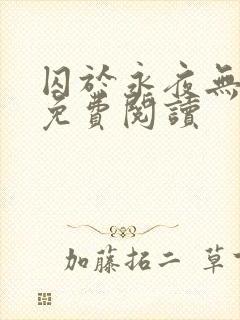 囚於永夜無
免費閱讀
加藤拓二 草